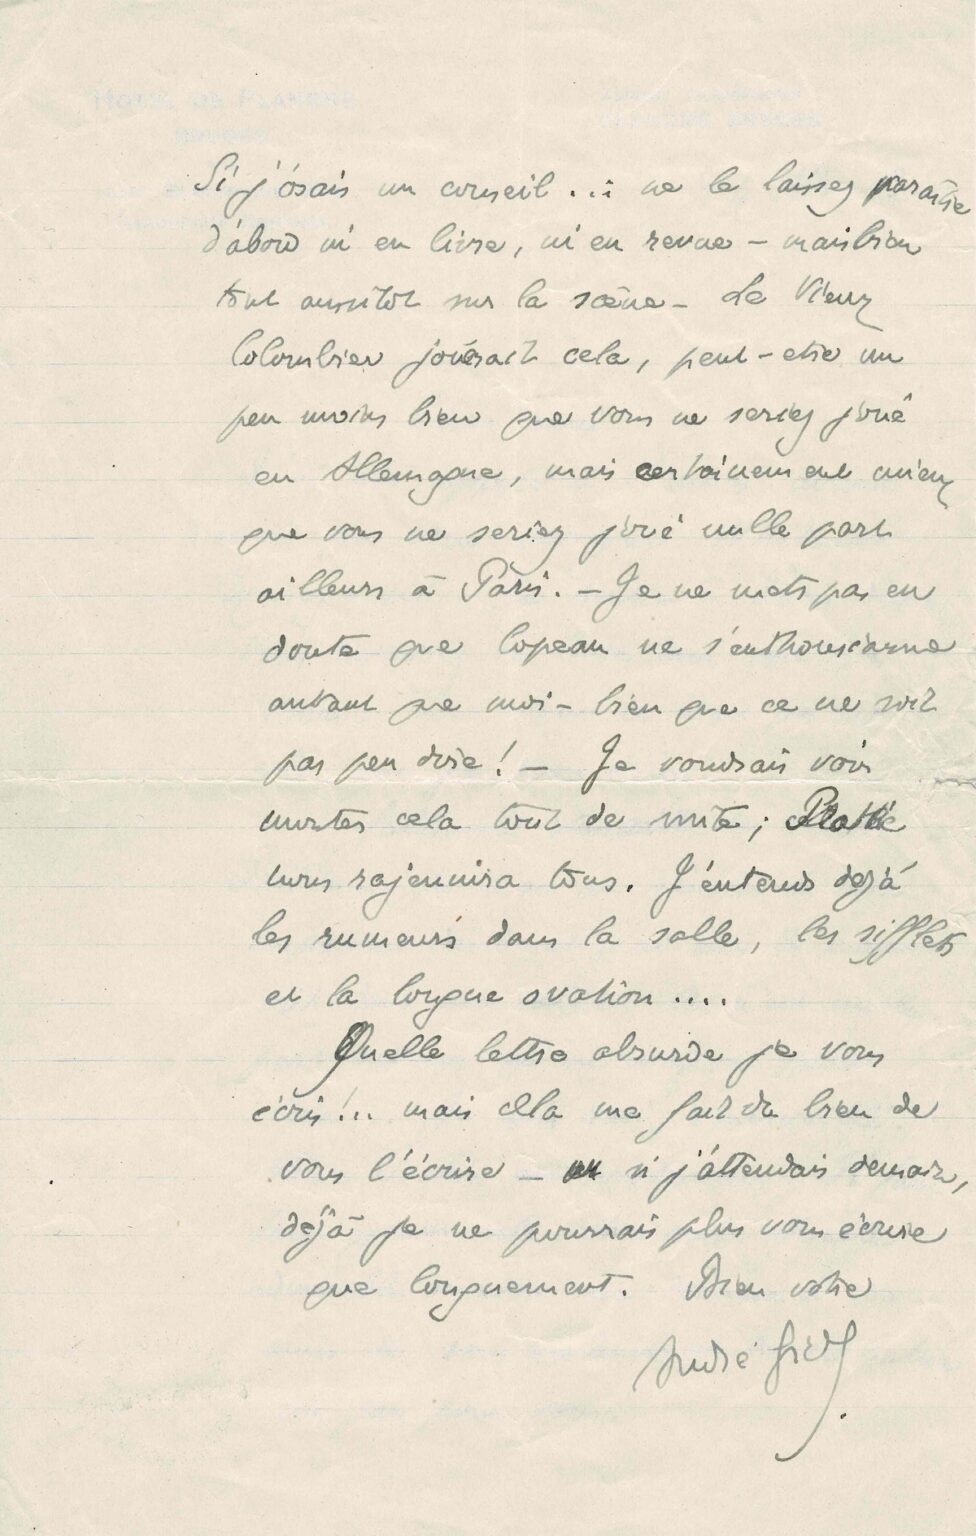 Si j'osais un conseil... : ne le laissez paraître
d'abord ni en livre, ni en revue – mais bien
tout aussitôt sur la scène – Le Vieux
Colombier jouerait cela, peut-etre un
peu moins bien que vous ne seriez joué
en Allemagne, mais certainement mieux
que vous ne seriez joué nulle part
ailleurs à Paris. – Je ne mets pas en
doute que Copeau ne s'enthousiasme
autant que moi – bien que ce ne soit
pas peu dire ! – Je voudrais voir
monter cela tout de suite ; Protée
nous rajeunira tous. J'entends dejà
les rumeurs dans la salle, les sifflets
et la longue ovation ....
Quelle lettre absurde je vous
écris !.. mais cela me fait du bien de
vous l'écrire – si j'attendais demain,
déjà je ne pourrais plus vous écrire
que longuement. Bien votre
André Gide.